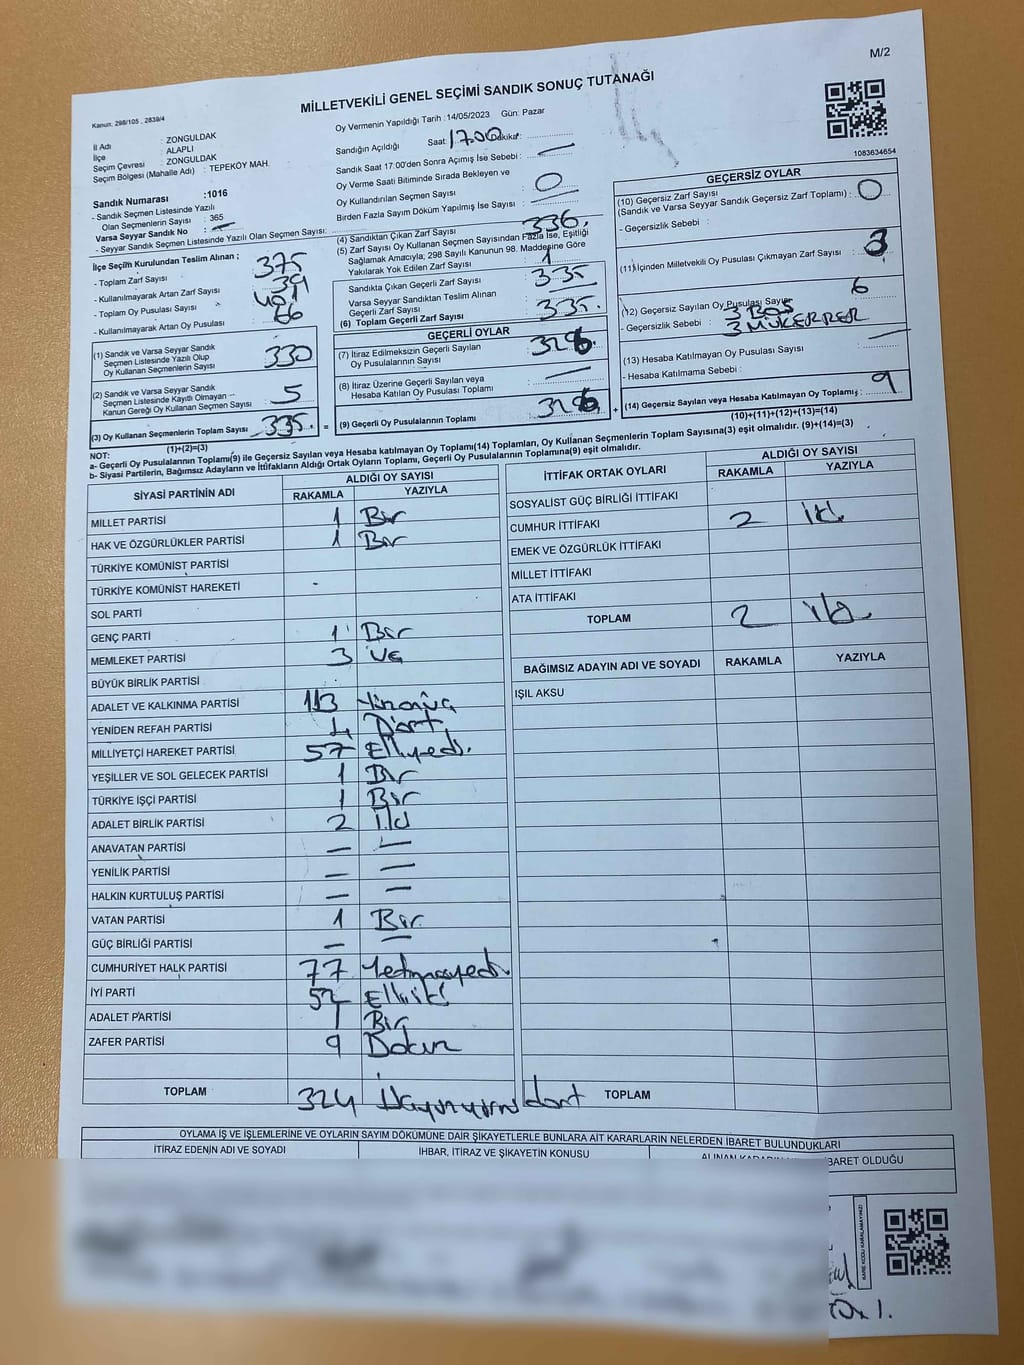 M/2
MİLLETVEKİLİ GENEL SEÇİMİ SANDIK SONUÇ TUTANAĞI
Kanun: 298/105 , 2839/4
İl Adı : ZONGULDAK
İlçe : ALAPLI
Seçim Çevresi : ZONGULDAK
Seçim Bölgesi (Mahalle Adı) : TEPEKÖY MAH.
Sandık Numarası :1016
- Sandık Seçmen Listesinde Yazılı
Olan Seçmenlerin Sayısı : 365
Varsa Seyyar Sandık No : —
- Seyyar Sandık Seçmen Listesinde Yazılı Olan Seçmen Sayısı:
Oy Vermenin Yapıldığı Tarih : 14/05/2023 Gün: Pazar
Sandığın Açıldığı Saat: 17.00 Dakika:
Sandık Saat 17:00'den Sonra Açımış İse Sebebi : —
Oy Verme Saati Bitiminde Sırada Bekleyen ve
Oy Kullandırılan Seçmen Sayısı : 0
Birden Fazla Sayım Döküm Yapılmış İse Sayısı : —
1083634654
İlçe Seçim Kurulundan Teslim Alınan ;
- Toplam Zarf Sayısı : 375
- Kullanılmayarak Artan Zarf Sayısı : 39
- Toplam Oy Pusulası Sayısı : 401
- Kullanılmayarak Artan Oy Pusulası : 66
(1) Sandık ve Varsa Seyyar Sandık
Seçmen Listesinde Yazılı Olup
Oy Kullanan Seçmenlerin Sayısı : 330
(2) Sandık ve Varsa Seyyar Sandık
Seçmen Listesinde Kayıtlı Olmayan
Kanun Gereği Oy Kullanan Seçmen Sayısı : 5
(3) Oy Kullanan Seçmenlerin Toplam Sayısı : 335.
(1)+(2)=(3)
(4) Sandıktan Çıkan Zarf Sayısı : 336.
(5) Zarf Sayısı Oy Kullanan Seçmen Sayısından Fazla İse, Eşitliği
Sağlamak Amacıyla; 298 Sayılı Kanunun 98. Maddesine Göre
Yakılarak Yok Edilen Zarf Sayısı : 1
Sandıkta Çıkan Geçerli Zarf Sayısı : 335
Varsa Seyyar Sandıktan Teslim Alınan
Geçerli Zarf Sayısı : —
(6) Toplam Geçerli Zarf Sayısı : 335.
GEÇERLİ OYLAR
(7) İtiraz Edilmeksizin Geçerli Sayılan
Oy Pusulalarının Sayısı : 326.
(8) İtiraz Üzerine Geçerli Sayılan veya
Hesaba Katılan Oy Pusulası Toplamı : —
= (9) Geçerli Oy Pusulalarının Toplamı : 326 +
GEÇERSİZ OYLAR
(10) Geçersiz Zarf Sayısı
(Sandık ve Varsa Seyyar Sandık Geçersiz Zarf Toplamı) : 0
- Geçersizlik Sebebi :
(11) İçinden Milletvekili Oy Pusulası Çıkmayan Zarf Sayısı : 3
(12) Geçersiz Sayılan Oy Pusulası Sayısı : 6
- Geçersizlik Sebebi : 3 BOŞ
3 MÜKERRER
(13) Hesaba Katılmayan Oy Pusulası Sayısı : —
- Hesaba Katılmama Sebebi :
(14) Geçersiz Sayılan veya Hesaba Katılmayan Oy Toplamı : 9
(10)+(11)+(12)+(13)=(14)
NOT:
a- Geçerli Oy Pusulalarının Toplamı(9) ile Geçersiz Sayılan veya Hesaba katılmayan Oy Toplamı(14) Toplamları, Oy Kullanan Seçmenlerin Toplam Sayısına(3) eşit olmalıdır. (9)+(14)=(3)
b- Siyasi Partilerin, Bağımsız Adayların ve İttifakların Aldığı Ortak Oyların Toplamı, Geçerli Oy Pusulalarının Toplamına(9) eşit olmalıdır.
SİYASİ PARTİNİN ADI ALDIĞI OY SAYISI
RAKAMLA YAZIYLA
MİLLET PARTİSİ 1 Bir
HAK VE ÖZGÜRLÜKLER PARTİSİ 1 Bir
TÜRKİYE KOMÜNİST PARTİSİ
TÜRKİYE KOMÜNİST HAREKETİ -
SOL PARTİ
GENÇ PARTİ 1 Bir
MEMLEKET PARTİSİ 3 üç
BÜYÜK BİRLİK PARTİSİ
ADALET VE KALKINMA PARTİSİ 113 Yüzonüç
YENİDEN REFAH PARTİSİ 4 Dört
MİLLİYETÇİ HAREKET PARTİSİ 57 Elliyedi.
YEŞİLLER VE SOL GELECEK PARTİSİ 1 Bir
TÜRKİYE İŞÇİ PARTİSİ 1 Bir
ADALET BİRLİK PARTİSİ 2 iki
ANAVATAN PARTİSİ — —
YENİLİK PARTİSİ — —
HALKIN KURTULUŞ PARTİSİ — —
VATAN PARTİSİ 1 Bir.
GÜÇ BİRLİĞİ PARTİSİ — —
CUMHURİYET HALK PARTİSİ 77 Yetmişyedi
İYİ PARTİ 52 Elliiki
ADALET PARTİSİ 1 Bir
ZAFER PARTİSİ 9 Dokuz
TOPLAM 324 Üçyüzyirmidört
İTTİFAK ORTAK OYLARI ALDIĞI OY SAYISI
RAKAMLA YAZIYLA
SOSYALİST GÜÇ BİRLİĞİ İTTİFAKI
CUMHUR İTTİFAKI 2 iki
EMEK VE ÖZGÜRLÜK İTTİFAKI
MİLLET İTTİFAKI
ATA İTTİFAKI
TOPLAM 2 iki
BAĞIMSIZ ADAYIN ADI VE SOYADI RAKAMLA YAZIYLA
IŞIL AKSU
TOPLAM
OYLAMA İŞ VE İŞLEMLERİNE VE OYLARIN SAYIM DÖKÜMÜNE DAİR ŞİKAYETLERLE BUNLARA AİT KARARLARIN NELERDEN İBARET BULUNDUKLARI
İTİRAZ EDENİN ADI VE SOYADI İHBAR, İTİRAZ VE ŞİKAYETİN KONUSU ALINAN İBARET OLDUĞU
KARE KODU KARALAMAYINIZ!